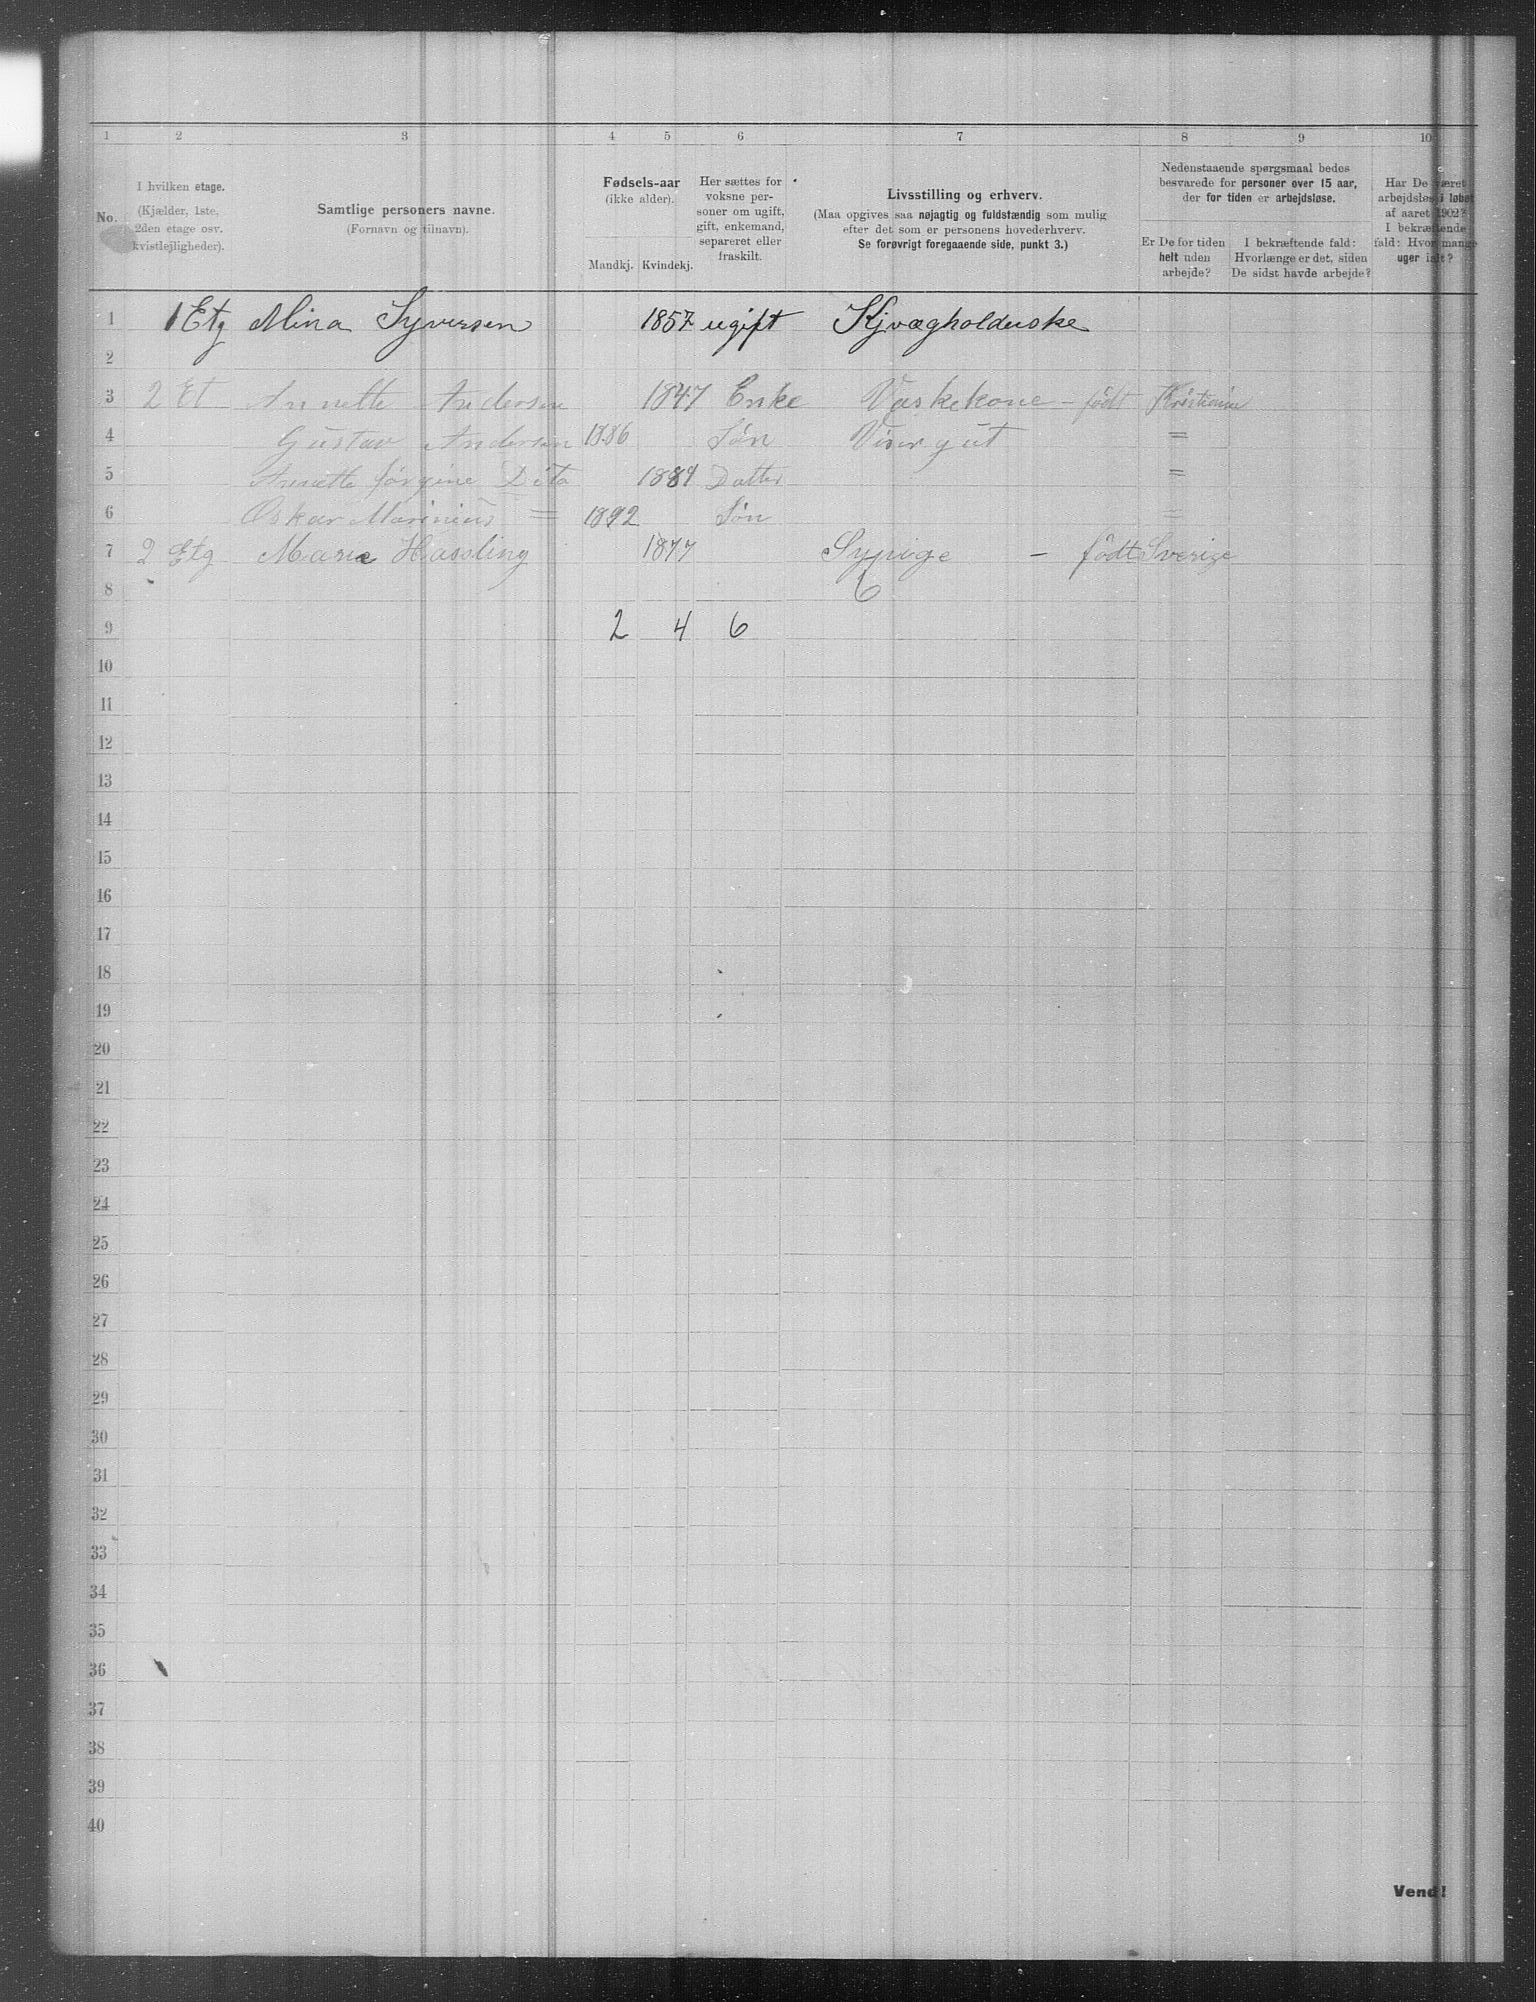 1 2 3 4 5 6 7 8 9 10
No.
I hvilken etage.
(Kjælder, 1ste,
2den etage osv.
kvistlejligheder).
Samtlige personers navne.
(Fornavn og tilnavn).
Fødsels-aar
(ikke alder).
Mandkj. Kvindekj.
Her sættes for
voksne per-
soner om ugift,
gift, enkemand,
separeret eller
fraskilt.
Livsstilling og erhverv.
(Maa opgives saa nøjagtig og fuldstændig som mulig
efter det som er personens hovederhverv.
Se forøvrigt foregaaende side, punkt 3.)
Nedenstaaende spørgsmaal bedes
besvarede for personer over 15 aar,
der for tiden er arbejdsløse.
Er De for tiden
helt uden
arbejde?
I bekræftende fald:
Hvorlænge er det, siden
De sidst havde arbejde?
Har De været
arbejdsløs i løbet
af aaret 1902?
I bekræftende
fald: Hvor mange
uger ialt?
1 1 Etg Mina Syversen 1857 ugift Kjvægholderske
2
3 2 Et Annette Andersen 1847 Enke Vaskekone - født Kristiania
4 Gustav Andersen 1886 Søn Visergut =
5 Annette Jørgine Dito 1884 Datter =
6 Oskar Marinius = 1892 Søn =
7 2 Etg Marie Hassling 1877 Sypige - født Sverige
8 6
9 2 4 6
10
11
12
13
14
15
16
17
18
19
20
21
22
23
24
25
26
27
28
29
30
31
32
33
34
35
36
37
38
39
40
Vend!